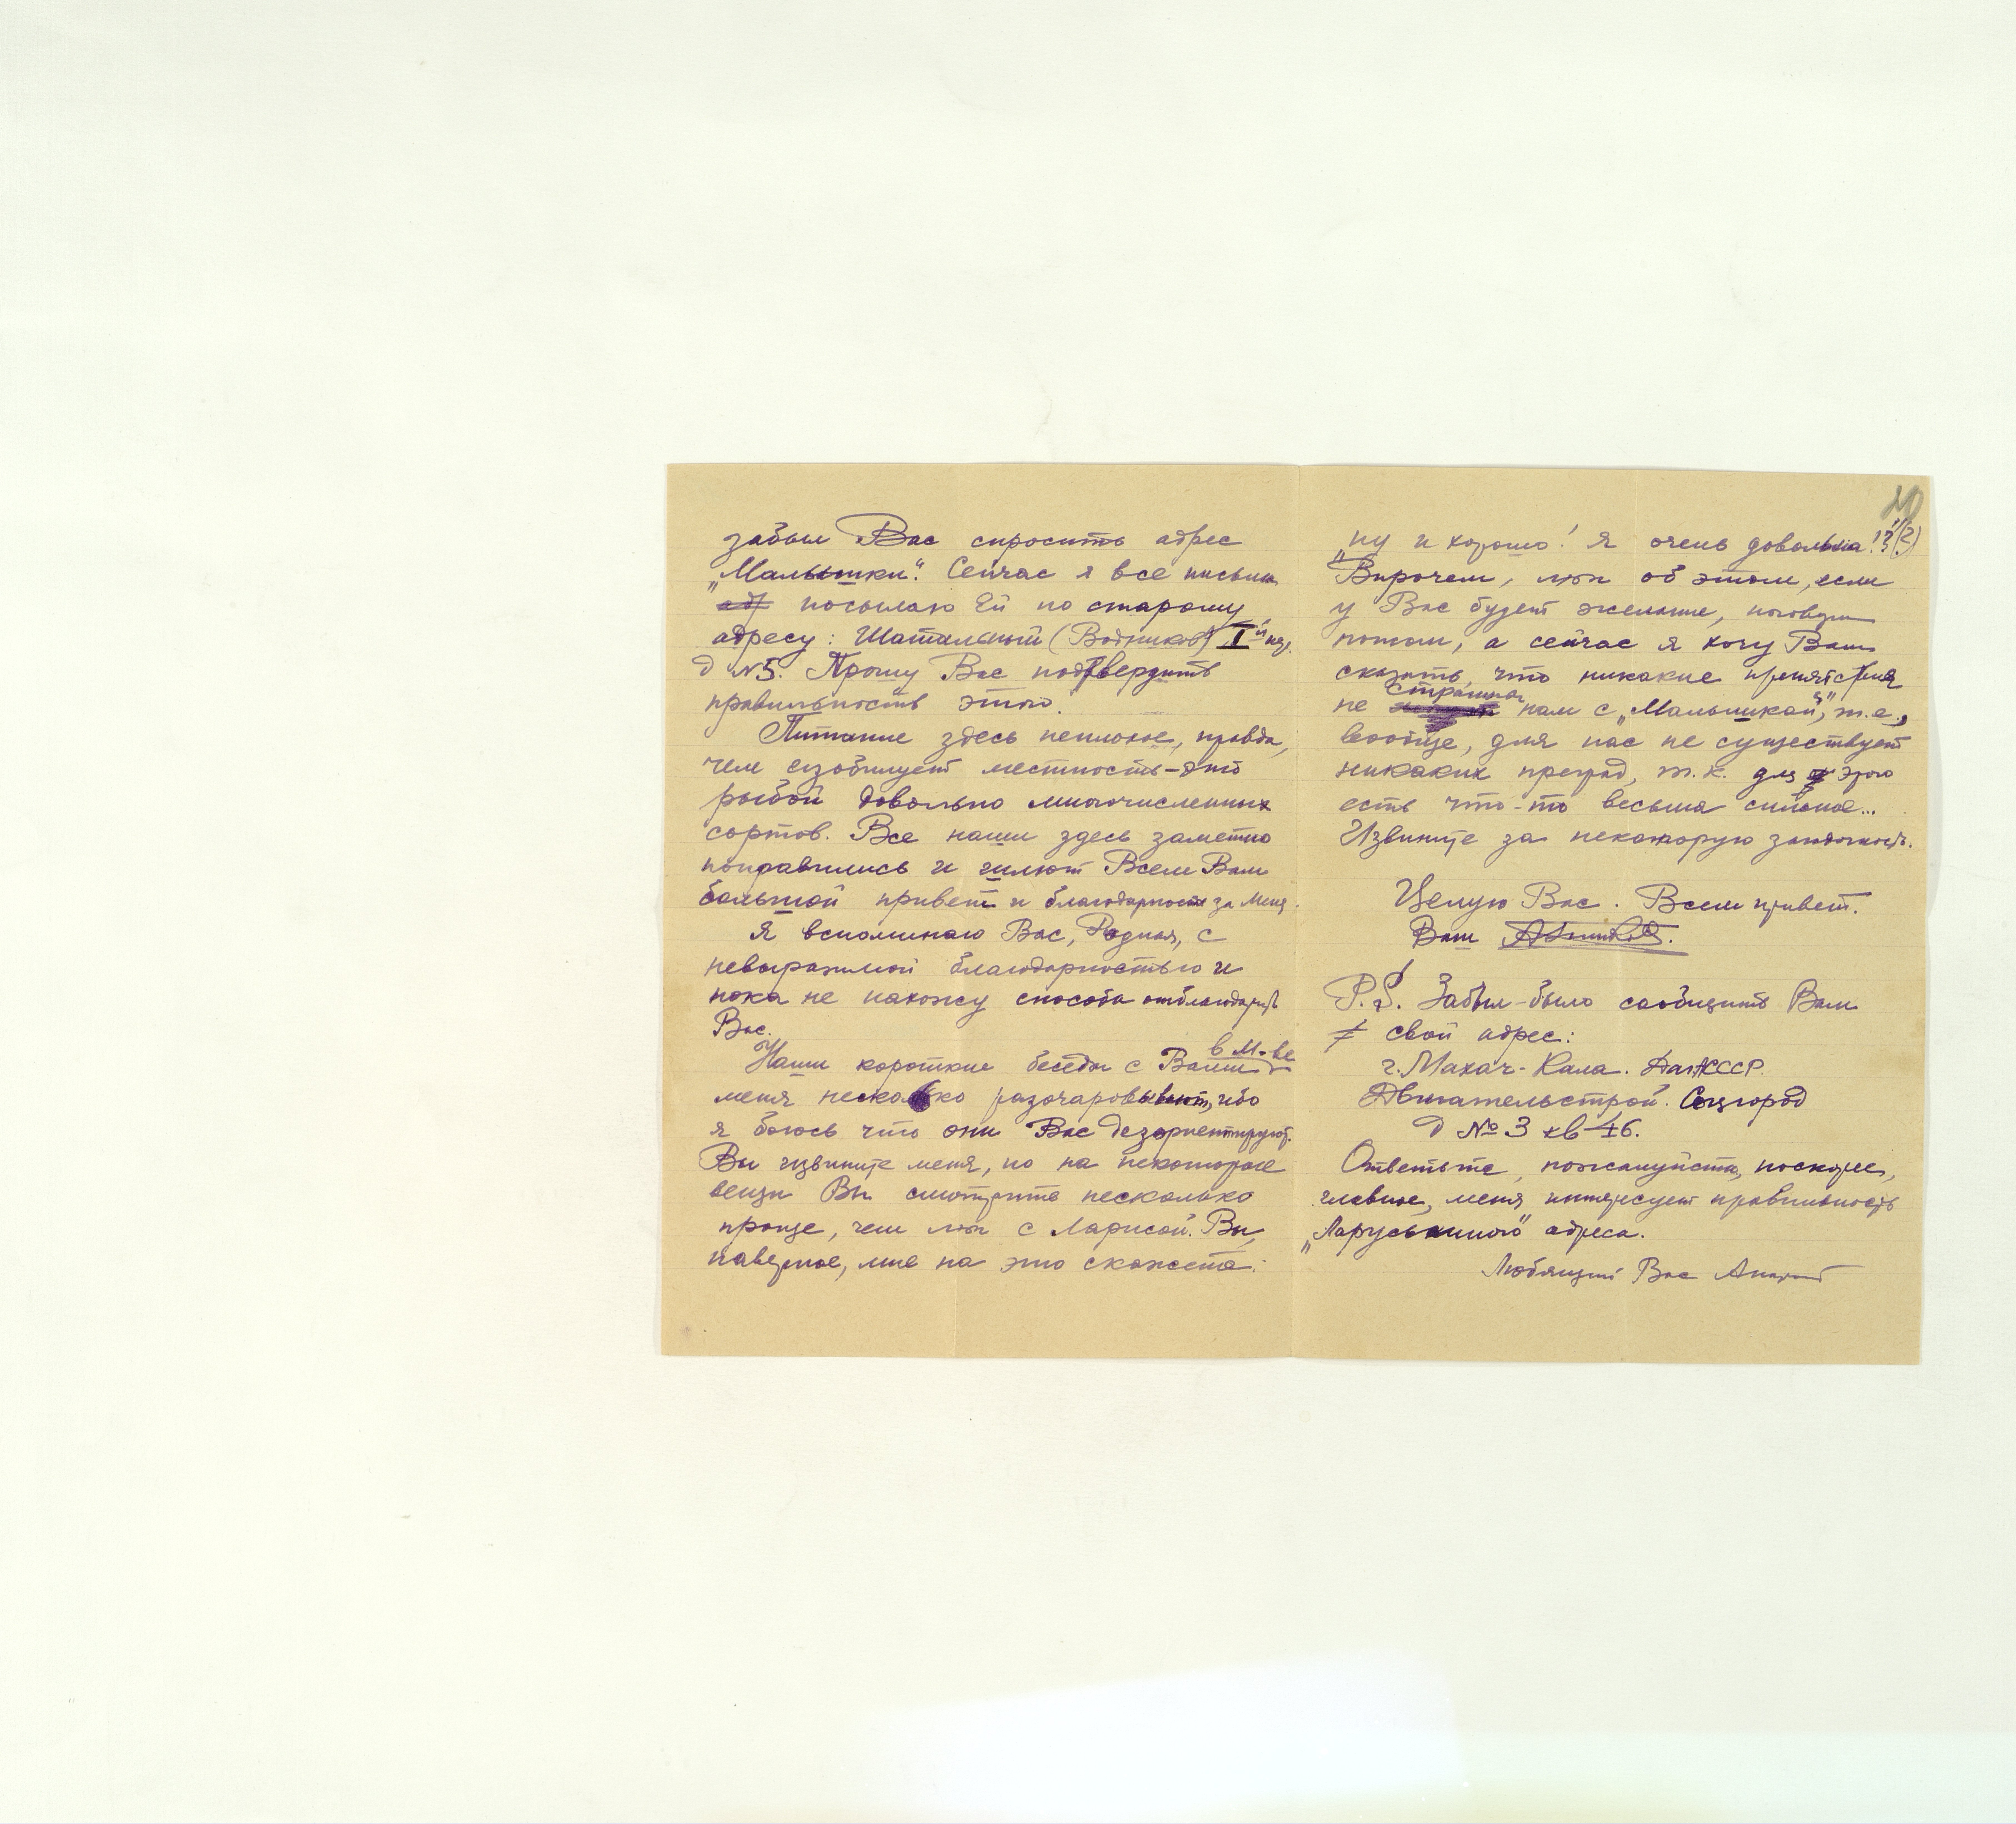 забыл Вас спросить адрес
„Малышки“. Сейчас я все письма
посылаю Ей по старому
адресу: Шатальный (Водников) I й
д №5. Прошу Вас подтвердить
правильность этого.
Питание здесь неплохое, правда,
чем изобилует местность – это
рыбой довольно многочисленных
сортов. Все наши здесь заметно
поправились и шлют Всем Вам
большой привет и благодарность за меня.
Я вспоминаю Вас, Родная, с
невыразимой благодарностью и
пока не нахожу способа отблагодарить
Вас.
Наши короткие беседы с Вами в М-ве
меня несколько разочаровывают, ибо
я боюсь что они Вас дезориентируют.
Вы извините меня, но на некоторые
вещи Вы смотрите несколько
проще, чем мы с Ларисой. Вы,
наверное, мне на это скажете:
20
„ну и хорошо! Я очень довольна!“ (?)
Впрочем, мы об этом, если
у Вас будет желание, поговорим
потом, а сейчас я хочу Вам
сказать, что никакие препятствия
не страшны нам с „Малышкой“, т.е.,
вообще, для нас не существует
никаких преград, т.к. для этого
есть что-то весьма сильное...
Извините за некоторую загадочность.
Целую Вас. Всем привет.
Ваш
P.S. Забыл-было сообщить Вам
свой адрес:
г. Махач-Кала. ДагАССР.
Двигательстрой. Соцгород
д №3 кв 46.
Ответьте, пожалуйста, поскорее,
главное, меня интересует правильность
„Ларуськиного“ адреса.
Любящий Вас